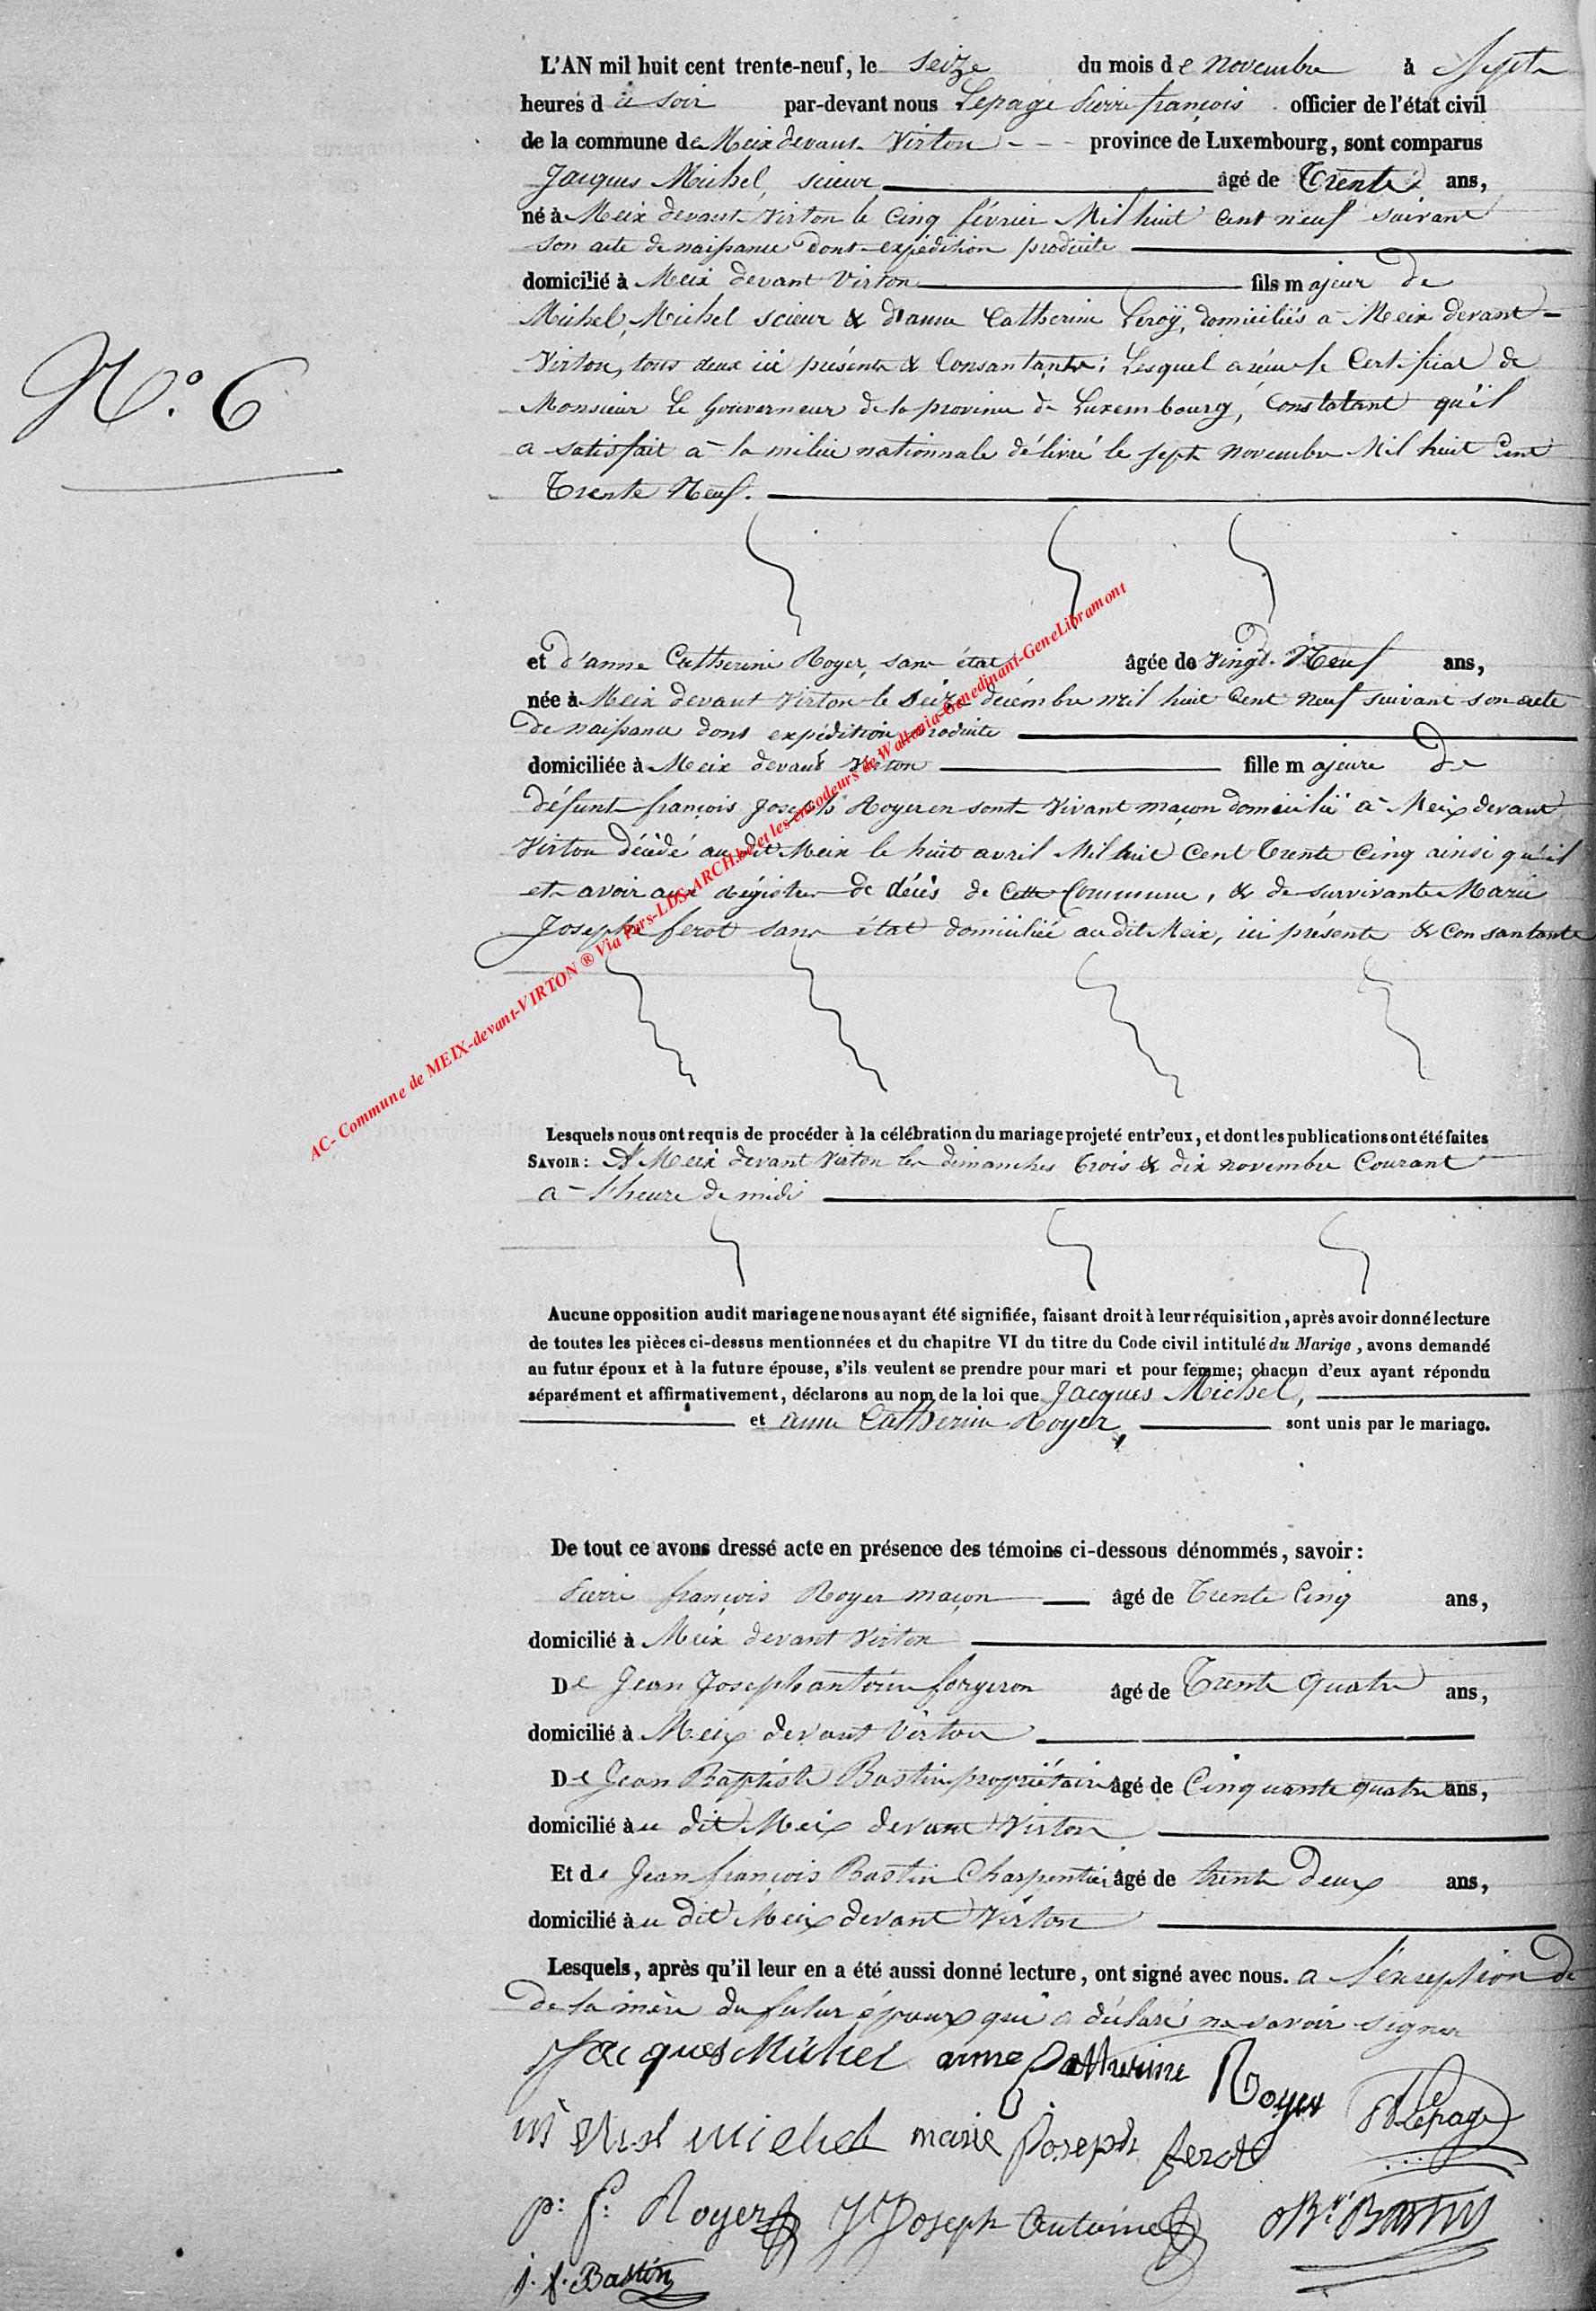 L'AN mil huit cent trente-neuf, le seize du mois de novembre à sept
heures du soir par-devant nous Lepage Pierre françois officier de l'état civil
de la commune de Meix devant Virton province de Luxembourg, sont comparus
Jacques Michel, scieur âgé de Trente ans,
né à Meix devant Virton le Cinq février Mil huit Cent neuf suivant
son acte de naissance dont expédition produite
domicilié à Meix devant Virton fils majeur de
Michel Michel scieur & d'anne Catherine Leroÿ, domiciliés à Meix devant
Virton, tous deux ici présents & Consantants; Lesquel a reçu le Certificat de
Monsieur Le Gouverneur de la province de Luxembourg, Constatant qu'il
a satisfait à la milice nationnale délivré le sept novembre Mil huit Cent
Trente Neuf.
N.° 6
et d'anne Catherine Royer, sans état âgée de vingt Neuf ans,
née à Meix devant Virton le Seize décembre mil huit Cent Neuf suivant son acte
de naissance dont expédition produite
domiciliée à Meix devant Virton fille majeure de
défunt françois Joseph Royer en sont vivant maçon domicilié à Meix devant
Virton décédé au dit Meix le huit avril Mil huit Cent Trente Cinq ainsi qu'il
et avoir aux régistre de décès de Cette Commune, & de survivante Marie
Josephe ferot sans état domiciliée au dit Meix, ici présente & Consantante
AC- Commune de MEIX-devant-VIRTON ® Via Pers-LDS-ARCH.be et les encodeurs de Wallonia-Genedinant-GeneLibramont
Lesquels nous ont requis de procéder à la célébration du mariage projeté entr'eux, et dont les publications ont été faites
SAVOIR: A Meix devant Virton les dimanches Trois & dix novembre Courant
a l'heure de midi
Aucune opposition audit mariage ne nous ayant été signifiée, faisant droit à leur réquisition, après avoir donné lecture
de toutes les pièces ci-dessus mentionnées et du chapitre VI du titre du Code civil intitulé du Marige, avons demandé
au futur époux et à la future épouse, s'ils veulent se prendre pour mari et pour femme; chacun d'eux ayant répondu
séparément et affirmativement, déclarons au nom de la loi que Jacques Michel,
et anne Catherine Royer, sont unis par le mariage.
De tout ce avons dressé acte en présence des témoins ci-dessous dénommés, savoir:
Pierre françois Royer maçon âgé de Trente Cinq ans,
domicilié à Meix devant Virton
De Jean Joseph antoine forgeron âgé de Trente quatre ans,
domicilié à Meix devant Virton
De Jean Baptiste Bastin propriétaire âgé de Cinquante quatre ans,
domicilié au dit Meix devant Virton
Et de Jean françois Bastin Charpentier âgé de trente deux ans,
domicilié au dit Meix devant Virton
Lesquels, après qu'il leur en a été aussi donné lecture, ont signé avec nous. a l'exception de
de la mère du futur époux qui a déclaré ne savoir signer
Jacques Michel anne Catherine Royer
Lepage
Michel marie Joseph ferot
p: f: Royer J Joseph Antoine Bastin
j. f. Bastin